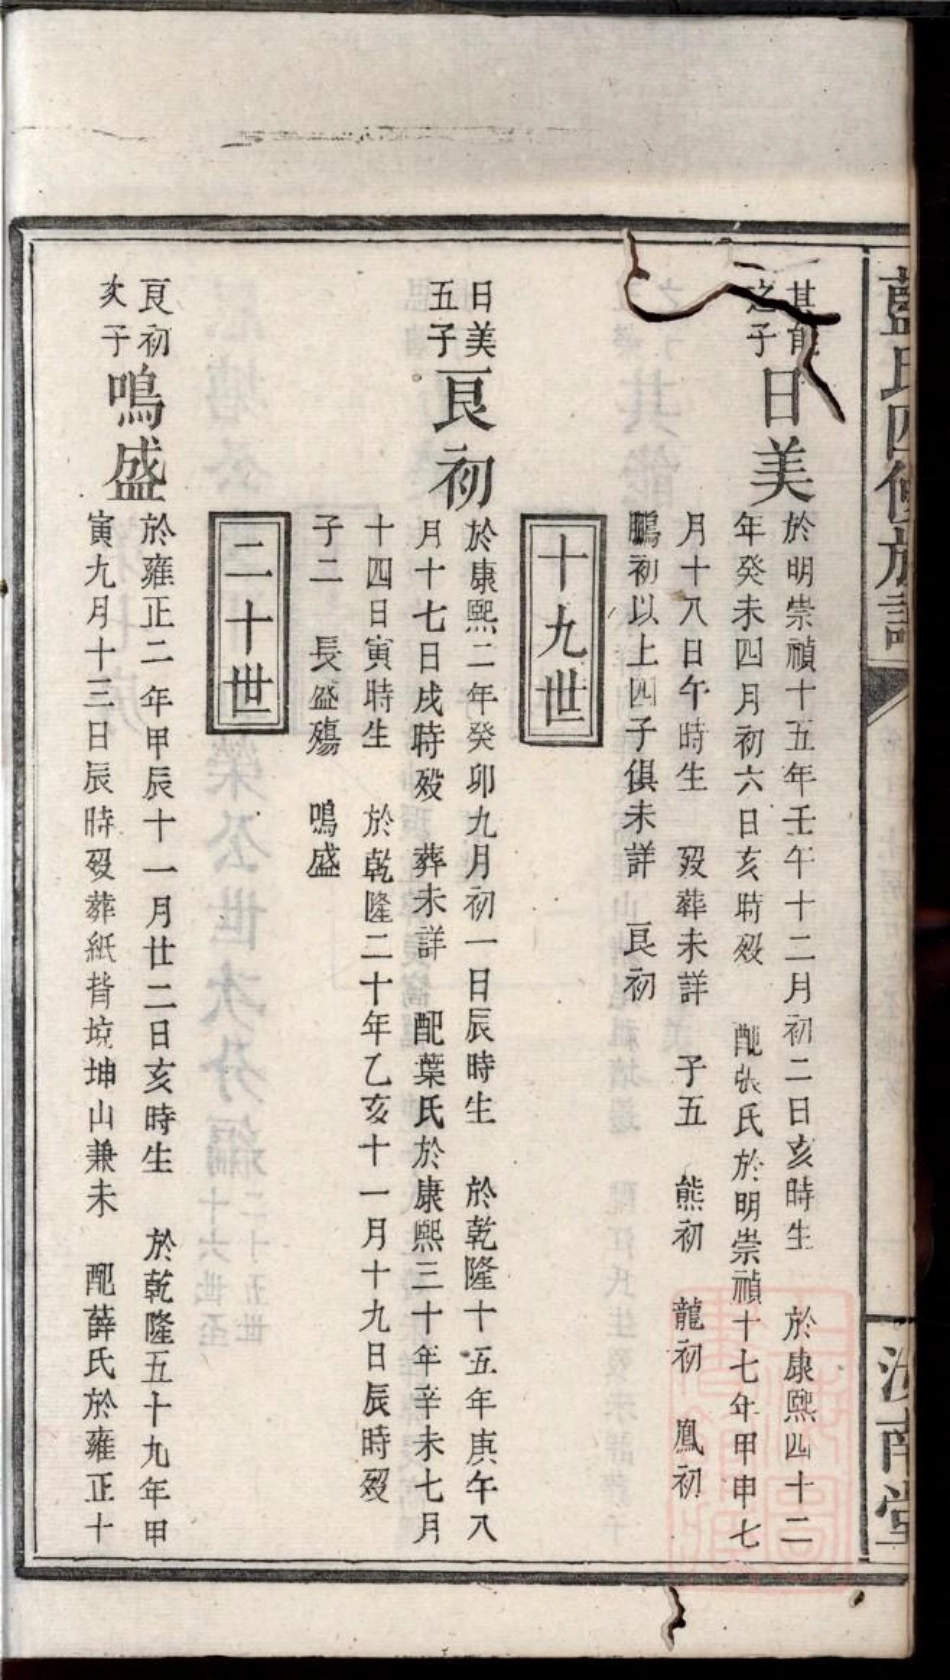 藍氏四修族譜
汝南堂
其能
之子
日美
於明崇禎十五年壬午十二月初二日亥時生 於康熙四十二
年癸未四月初六日亥時歿 配張氏於明崇禎十七年甲申七
月十八日午時生 歿葬未詳 子五 熊初 龍初 鳳初
鵬初以上四子俱未詳 良初
十九世
日美
五子
良初
於康熙二年癸卯九月初一日辰時生 於乾隆十五年庚午八
月十七日戌時歿 葬未詳 配葉氏於康熙三十年辛未七月
十四日寅時生 於乾隆二十年乙亥十一月十九日辰時歿
子二 長盛殤 鳴盛
二十世
良初
次子
鳴盛
於雍正二年甲辰十一月廿二日亥時生 於乾隆五十九年甲
寅九月十三日辰時歿葬紙背境坤山兼未 配薛氏於雍正十